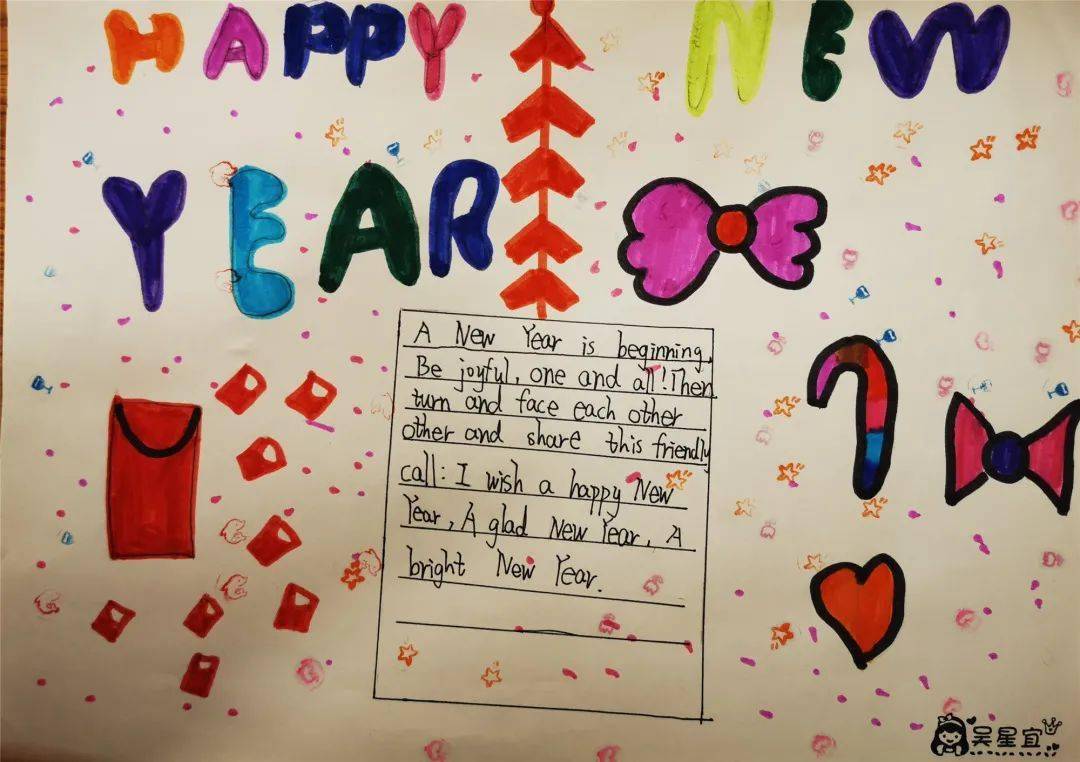 HAPPY NEW
YEAR
A New Year is beginning.
Be joyful, one and all! Then
turn and face each other
other and share this friendly
call: I wish a happy New
Year, A glad New Year, A
bright New Year.
吴星宜